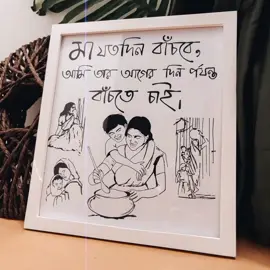 মা যতদিন বাঁচবে,
আমি তার আগের দিন পর্যন্ত
বাঁচতে চাই।